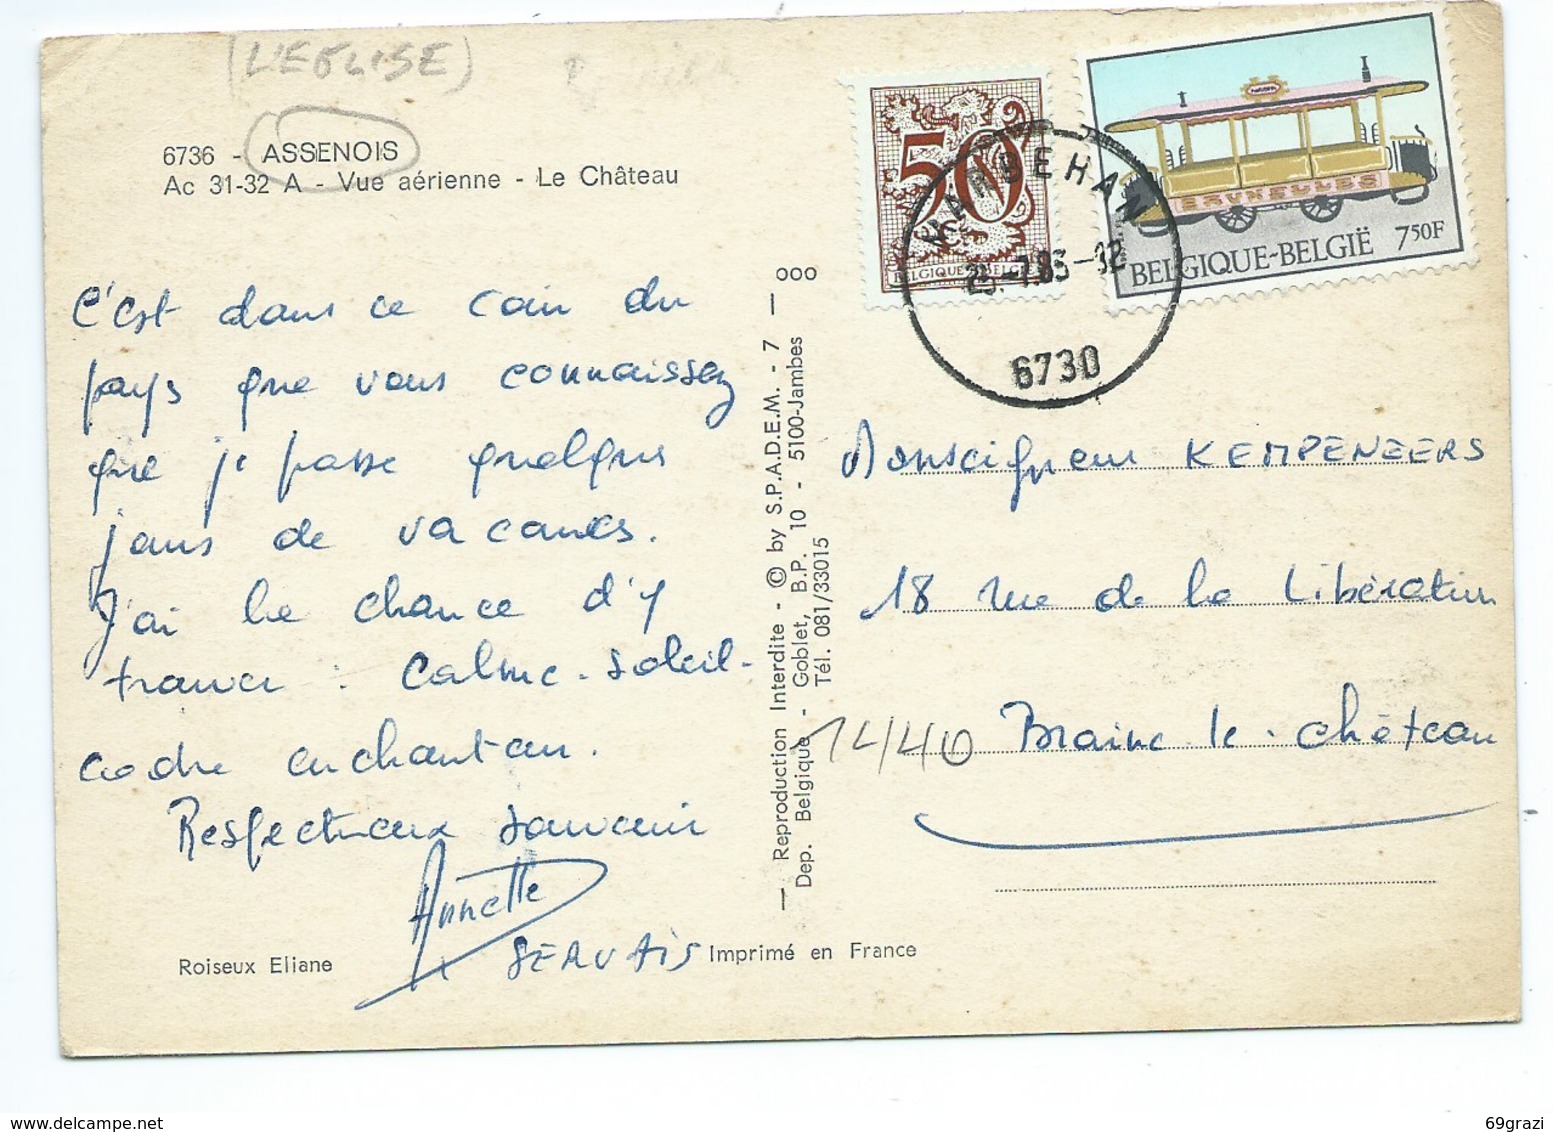 (L'EGLISE)
6736 - ASSENOIS
Ac 31-32 A - Vue aérienne - Le Château
C'est dans ce coin du
pays que vous connaissez
que je passe quelques
jours de vacances.
J'ai la chance d'y
trouver : Calme - soleil -
cadre enchanteur.
Respectueux souvenir
Annette
SERVAIS
Roiseux Eliane
Imprimé en France
— Reproduction Interdite - © by S.P.A.D.E.M. - 7 — ooo
Dep. Belgique - Goblet, B.P. 10 - 5100-Jambes
Tél. 081/33015
50
BELGIQUE BELGIE
BRUXELLES
BELGIQUE-BELGIË 750F
MARBEHAN
6730
Monseigneur KEMPENEERS
18 rue de la Libération
1440 Braine-le-château
69grazi